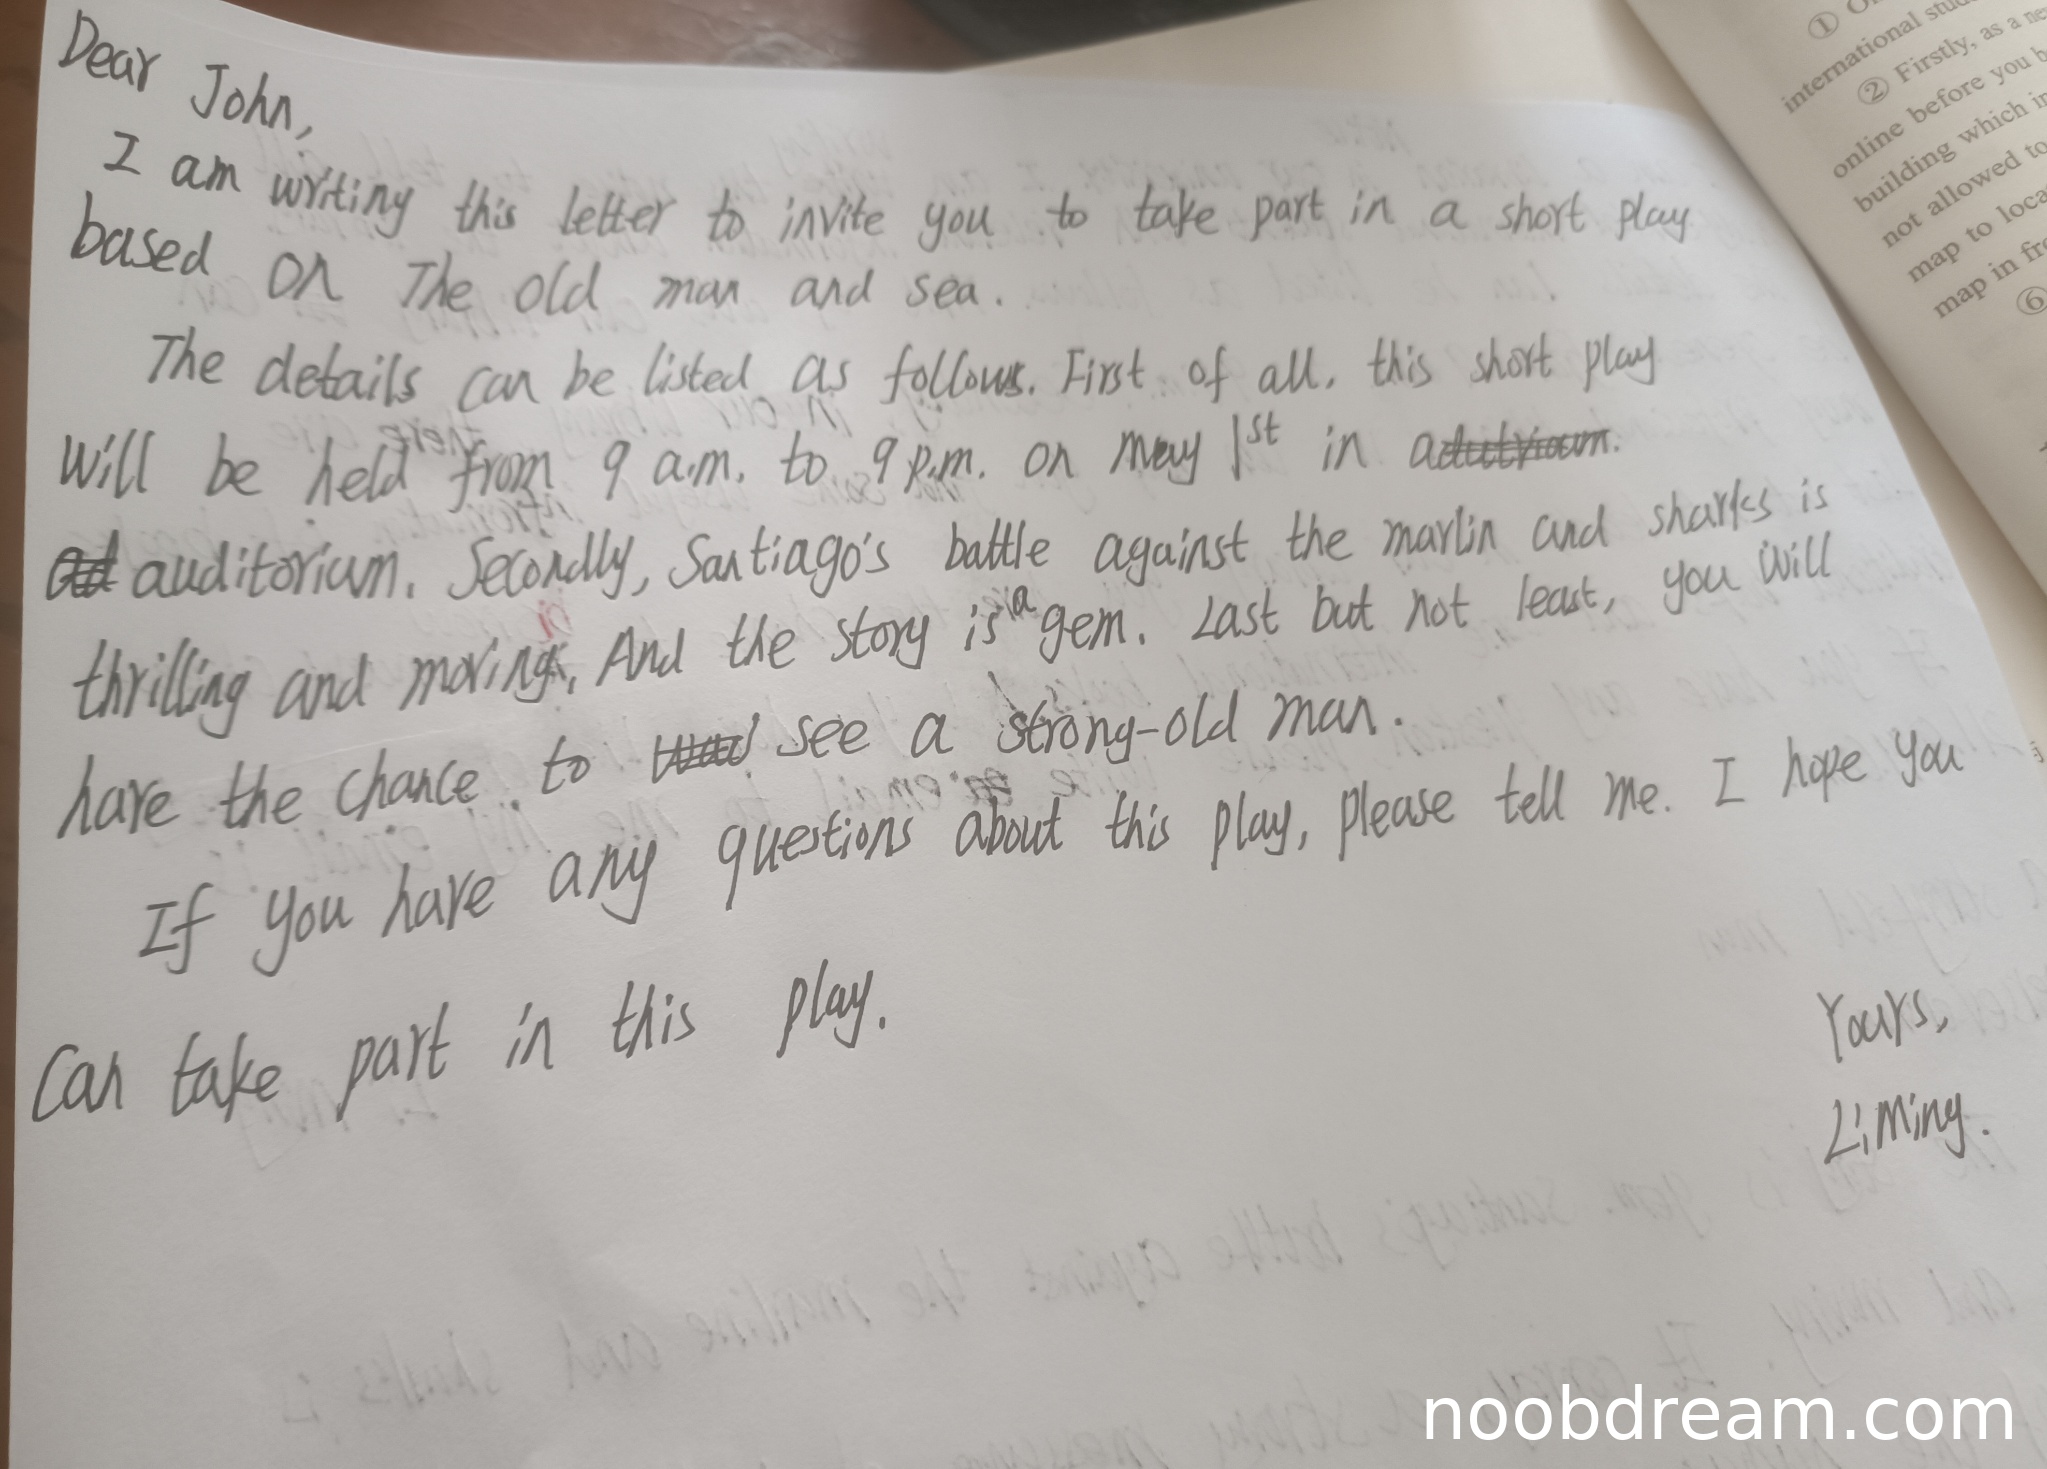 Dear John,
I am writing this letter to invite you to take part in a short play
based on The old man and sea.
The details can be listed as follows. First of all, this short play
will be held from 9 a.m. to 9 p.m. on may 1st in
auditorium. Secondly, Santiago's battle against the marlin and sharks is
thrilling and moving. And the story is a gem. Last but not least, you will
have the chance to see a strong-old man.
If you have any questions about this play, please tell me. I hope you
can take part in this play.
Yours,
Li Ming.
① O
international stud
② Firstly, as a ne
online before you b
building which i
not allowed to
map to loca
map in fr
⑥
noobdream.com